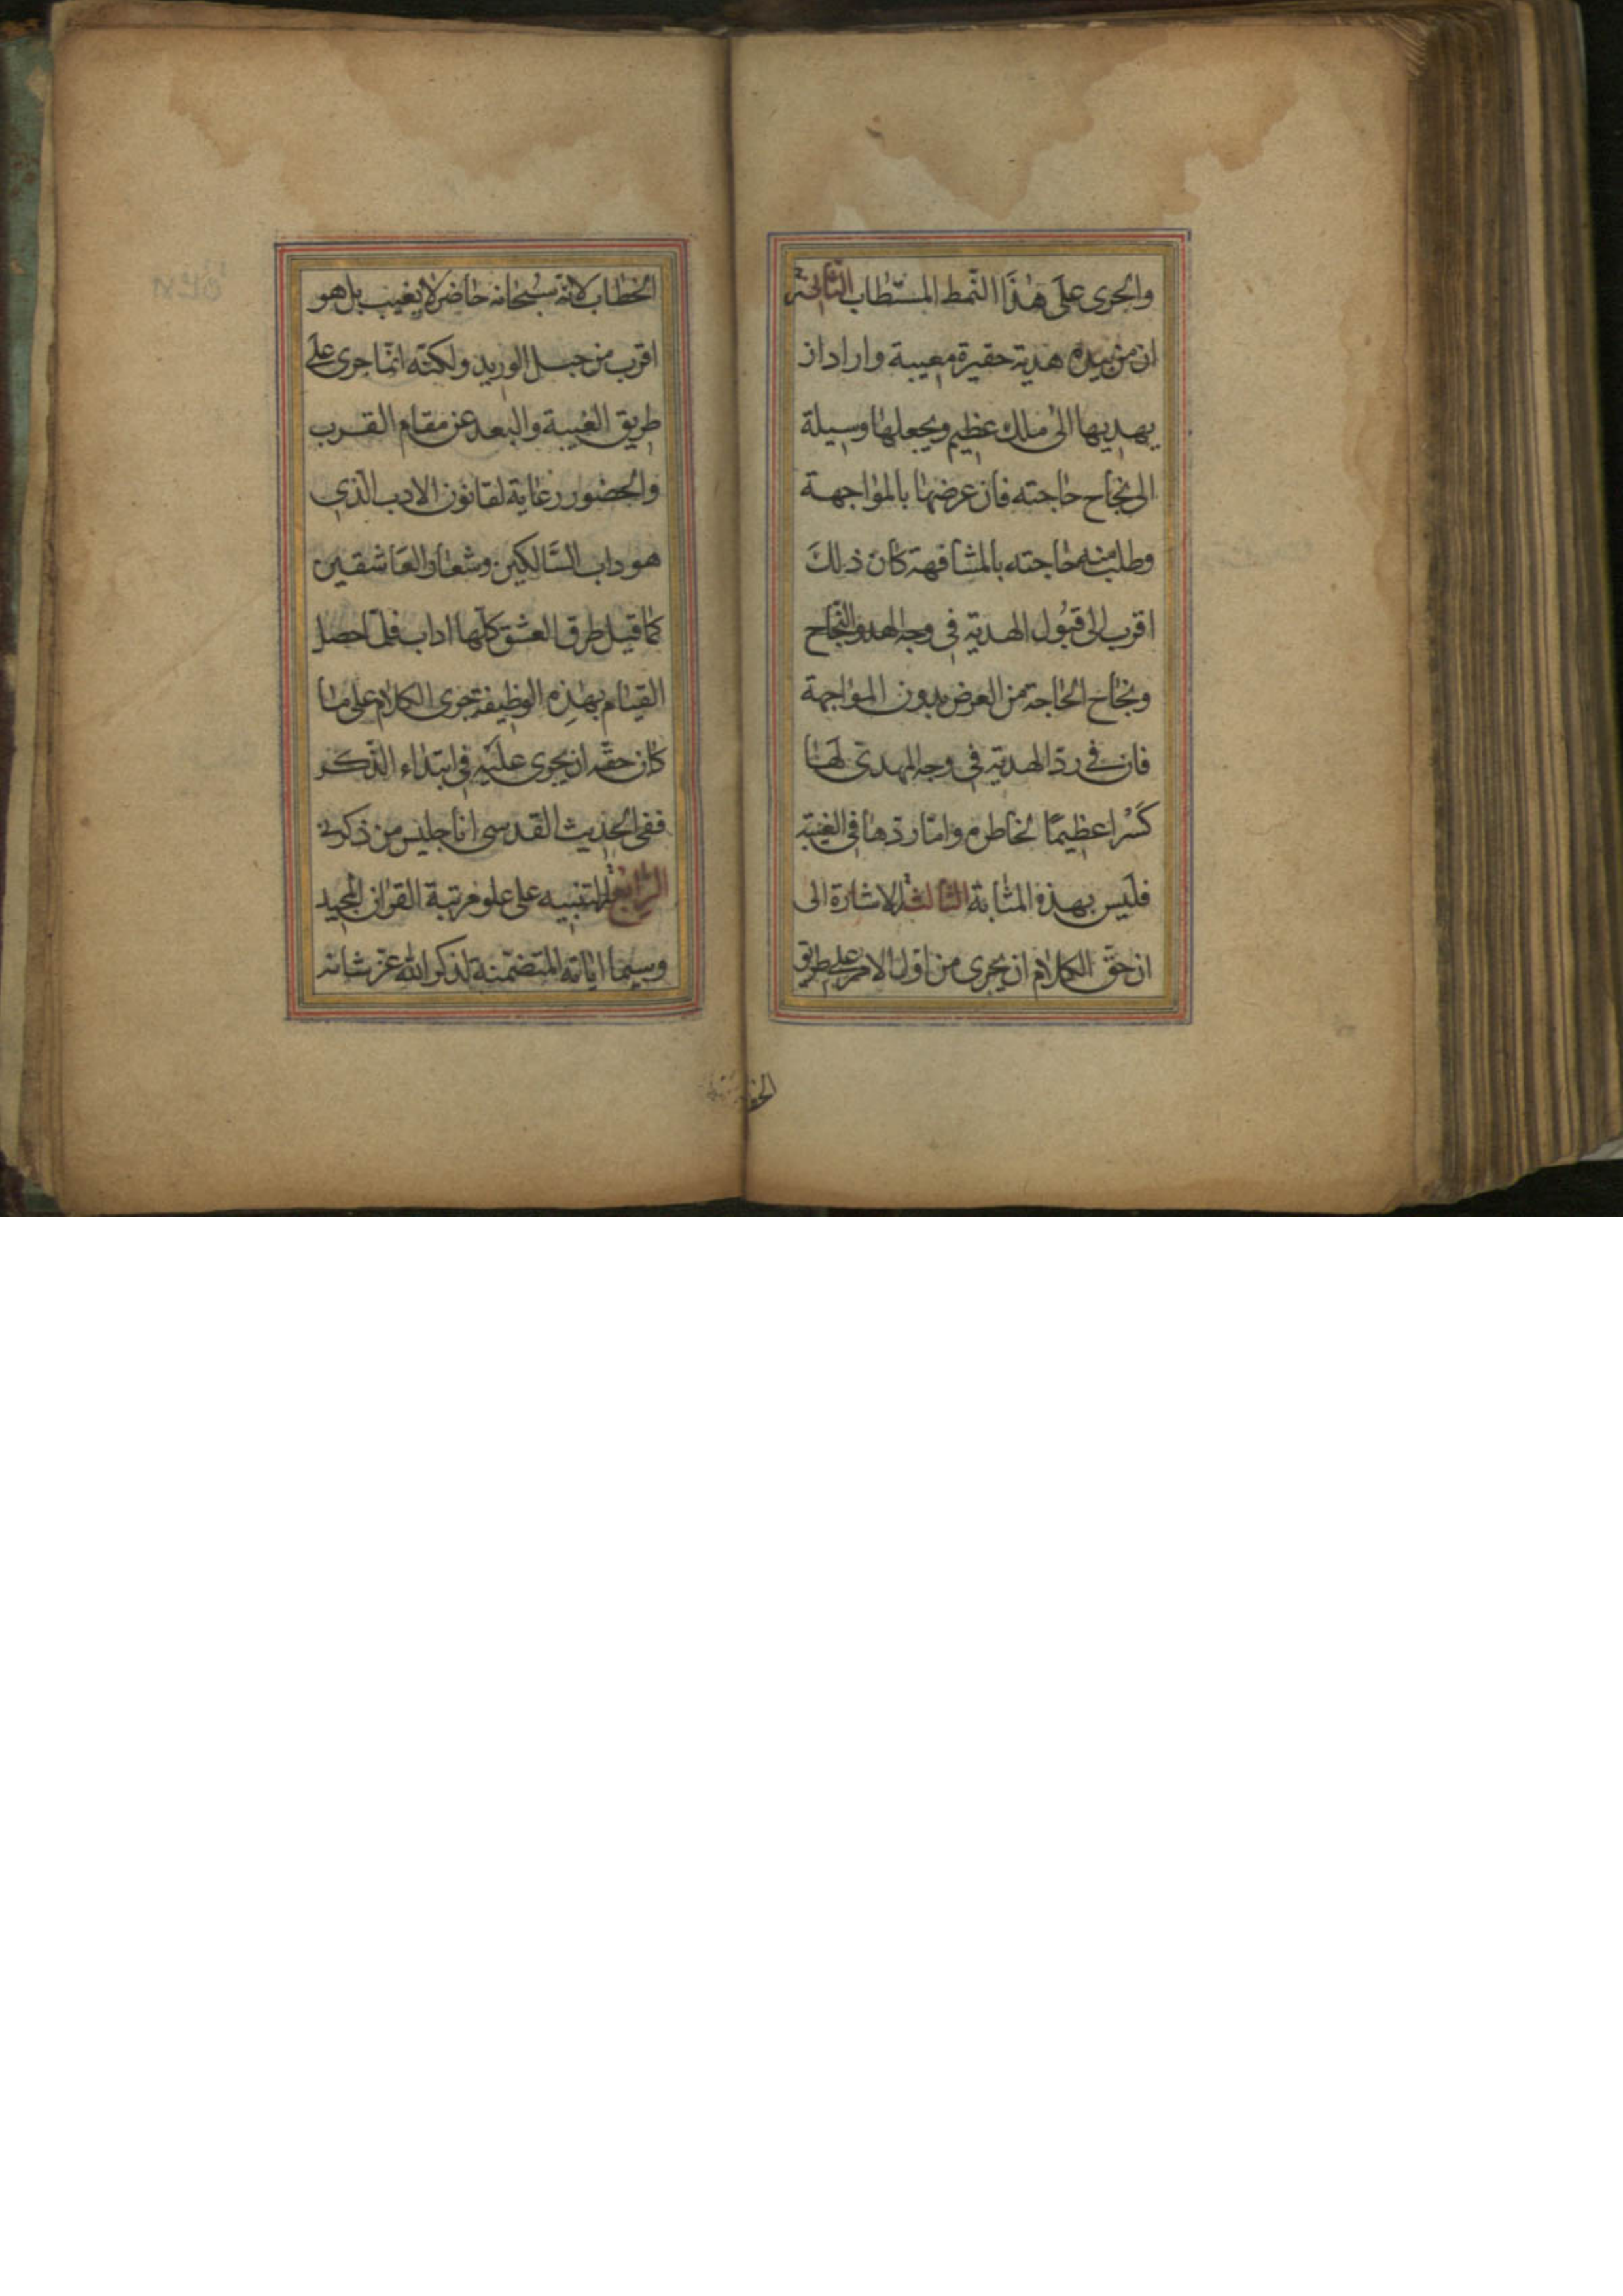 والجرى على هذا النمط المستطاب الثانية
ان من بيده هدية حقيرة معيبة واراد ان
يهديها الى ملك عظيم ويجعلها وسيلة
الى نجاح حاجته فان عرضها بالمواجهة
وطلب منه حاجته بالمشافهة كان ذلك
اقرب الى قبول الهدية في
ونجاح الحاجة من العرض بدون المواجهة
فان في ردّ الهدية في وجه المهدى لها
كسْرا عظيمًا لخاطره وامّا ردّها في الغيبة
فليس بهذه المثابة الثالثة الاشارة الى
ان حقّ الكلام ان يجرى من اول الامر على طريق
الخطاب لانّه سبحانه حاضر لا يغيب بل هو
اقرب من حبل الوريد ولكنّه انّما جرى على
طريق الغيبة والبعد عن مقام القرب
والحضور رعاية لقانون الادب الّذي
هو داب السّالكين وشعار العاشقين
كما قيل طرق العشق كلّها اداب فلمّا حصل
القيام بهذه الوظيفة جرى الكلام على ما
كان حقّه ان يجرى عليه في ابتداء الذّكر
ففي الحديث القدسى انا جليس من ذكرنى
الرّابعة التنبيه على علو مرتبة القران المجيد
وسيما اياته المتضمّنة لذكر الله عزّ شانه